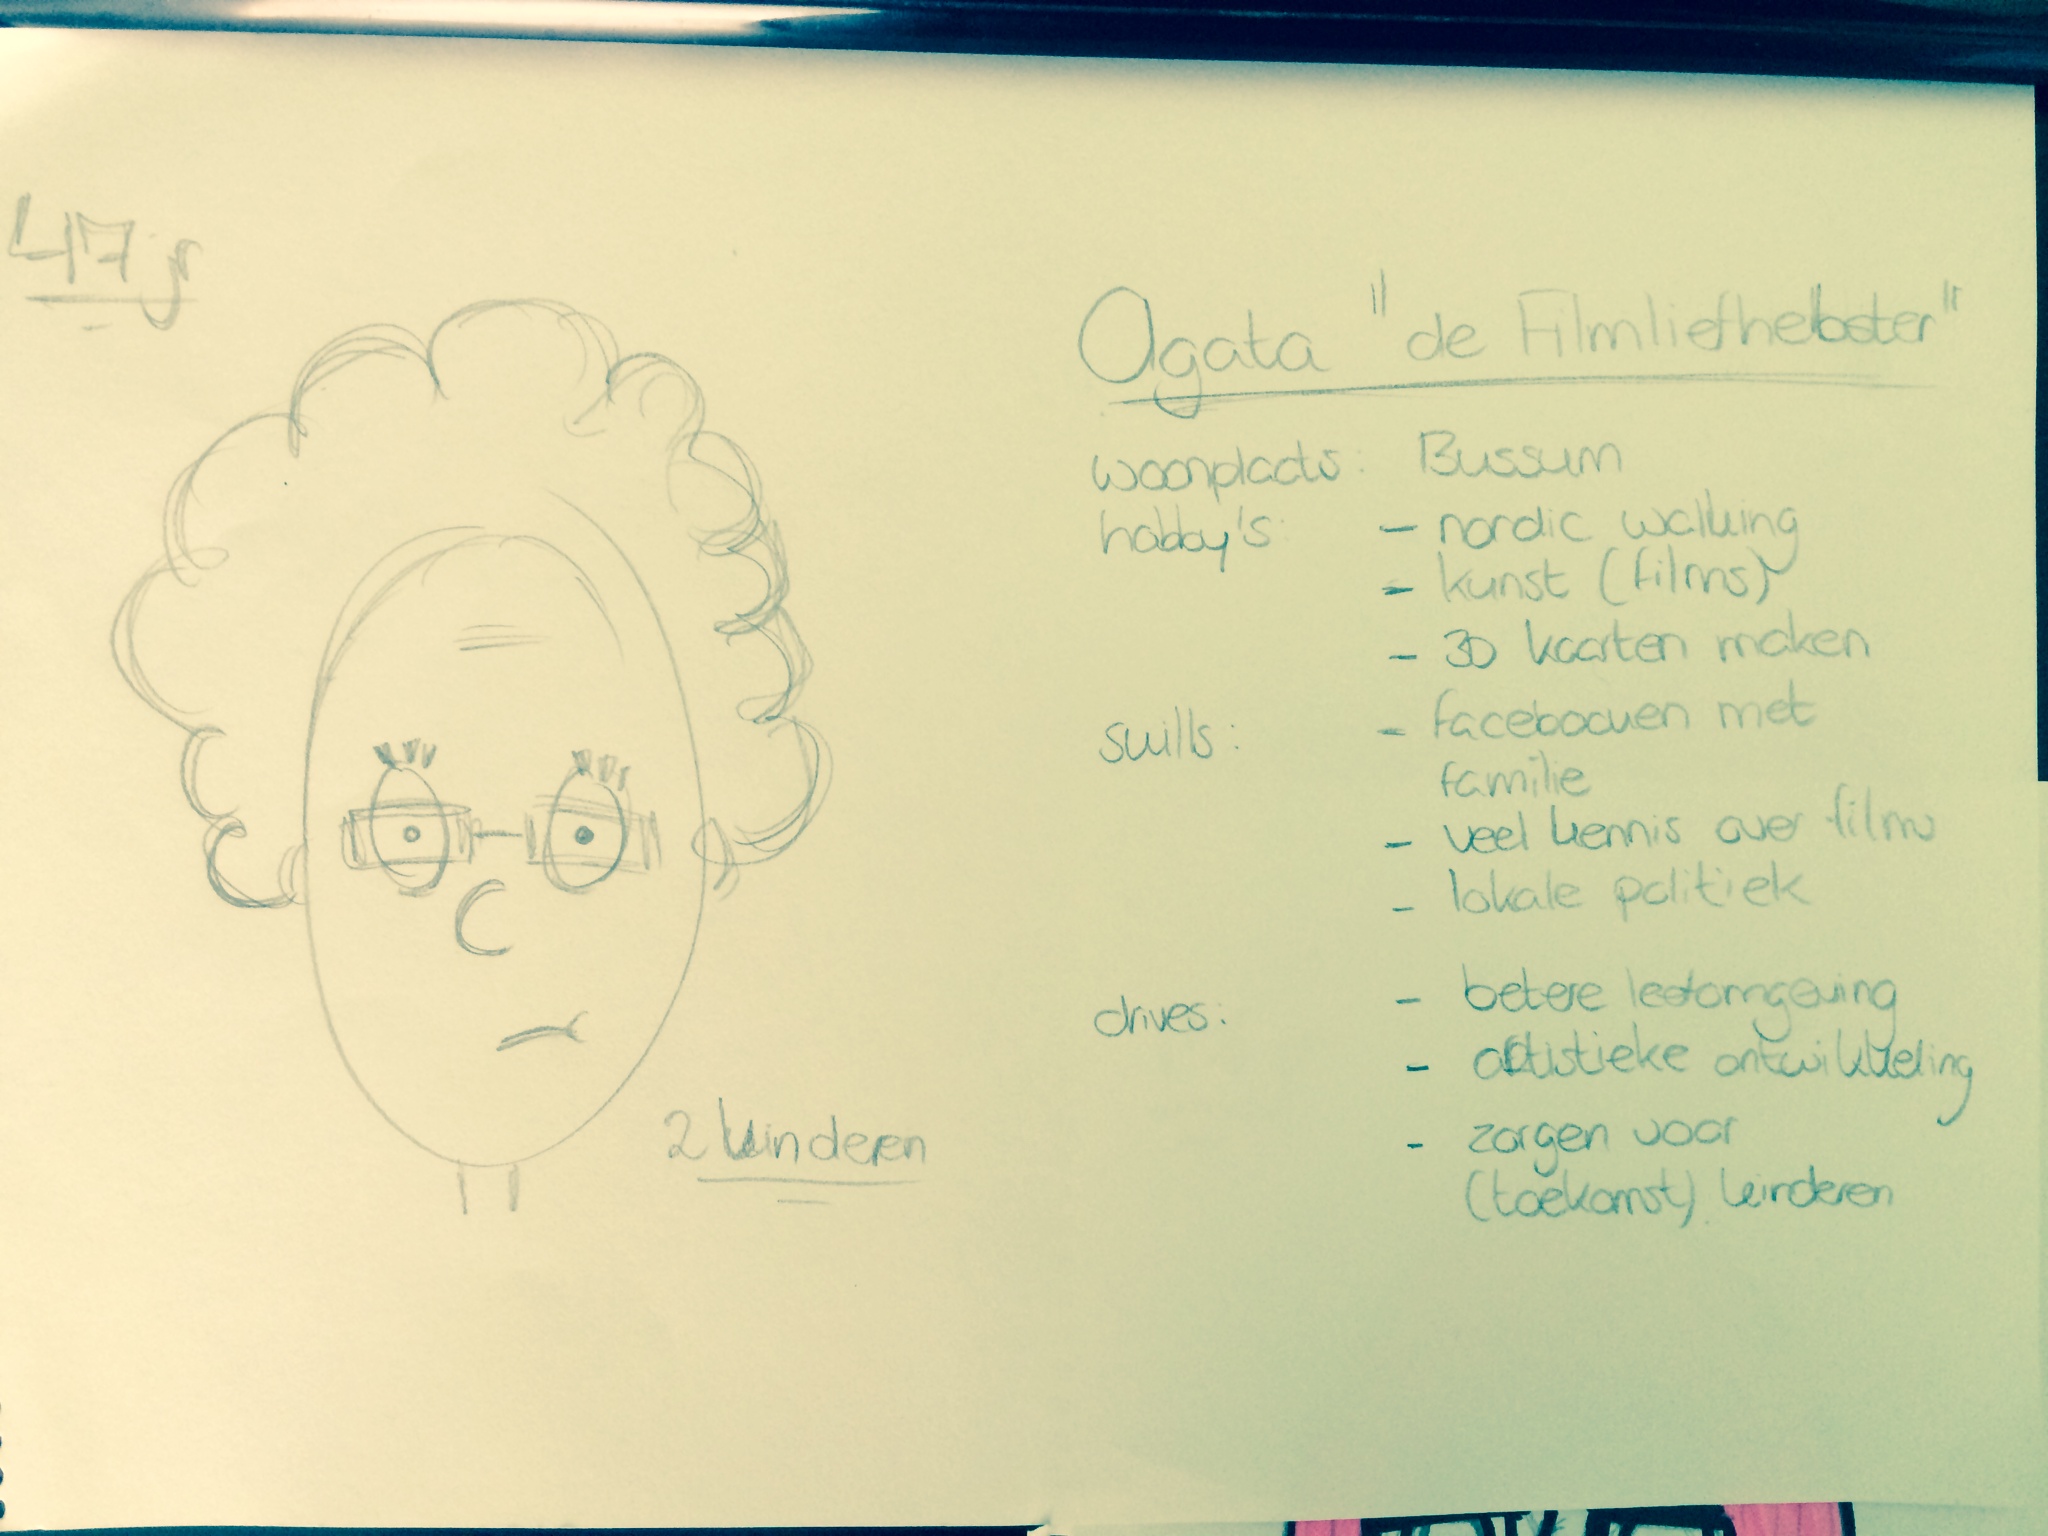 47 jr
Agata "de Filmliefhebster"
woonplaats: Bussum
hobby's: - nordic walking
- kunst (films)
- 3D kaarten maken
skills: - facebooken met
familie
- veel kennis over films
- lokale politiek
drives: - betere leefomgeving
- artistieke ontwikkeling
- zorgen voor
(toekomst) kinderen
2 kinderen